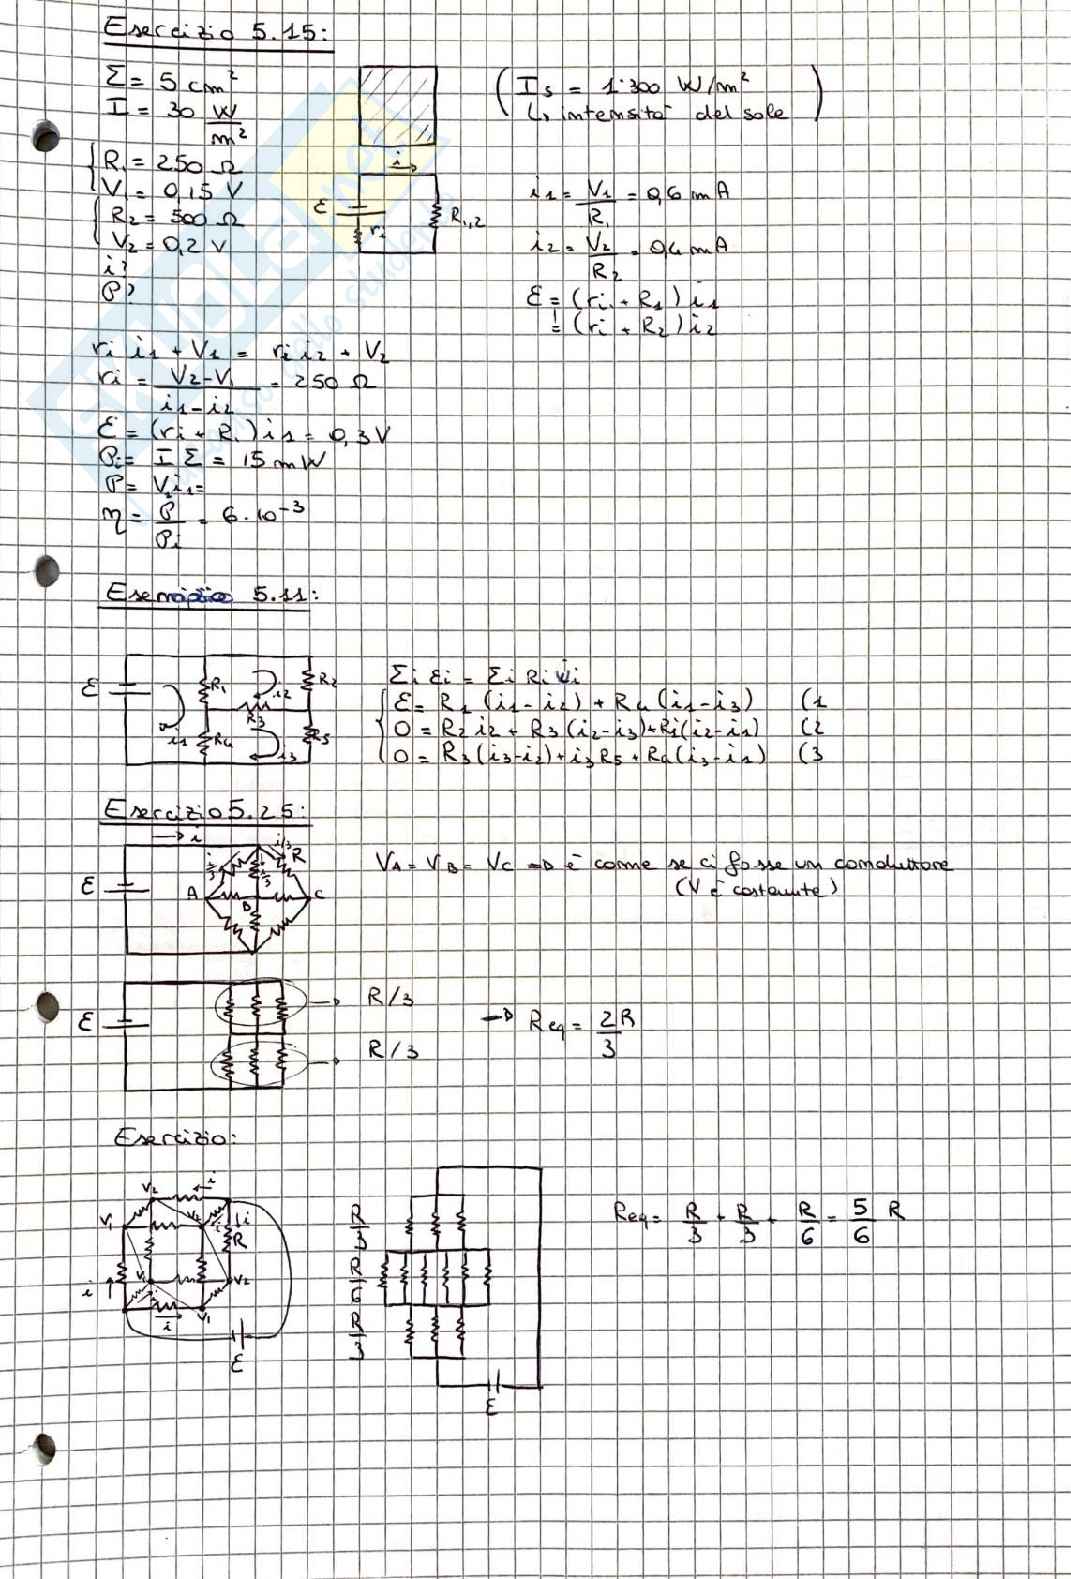 Esercizio 5.15:
Σ = 5 cm²
I = 30 W/m²
(Is = 1300 W/m²
↳ intensità del sole)
R1 = 250 Ω
V1 = 0,15 V
R2 = 500 Ω
V2 = 0,2 V
i?
P?
i →
ε
ri
R1,2
i1 = V1/R1 = 0,6 mA
i2 = V2/R2 = 0,4 mA
ε = (ri + R1) i1
= (ri + R2) i2
ri i1 + V1 = ri i2 + V2
ri = (V2 - V1)/(i1 - i2) = 250 Ω
ε = (ri + R1) i1 = 0,3 V
Pi = I Σ = 15 mW
P = V1 i1 =
η = P/Pi = 6·10⁻³
Esempio 5.11:
ε
R1
i2
R2
R3
i1
R4
i3
R5
Σi εi = Σi Ri ii
ε = R1 (i1-i2) + R4 (i1-i3) (1
0 = R2 i2 + R3 (i2-i3) + R1 (i2-i1) (2
0 = R3 (i3-i2) + i3 R5 + R4 (i3-i1) (3
Esercizio 5.25:
→ i
i/3
R
i/3
i/3
ε
A
B
C
VA = VB = VC → è come se ci fosse un conduttore
(V è costante)
ε
→ R/3
→ R/3
→ Req = 2R/3
Esercizio:
V2
i
V1
V2
i
i
R
V1
V2
i
i
V1
i
ε
R/3
R/6
R/3
ε
Req = R/3 + R/3 + R/6 = 5/6 R